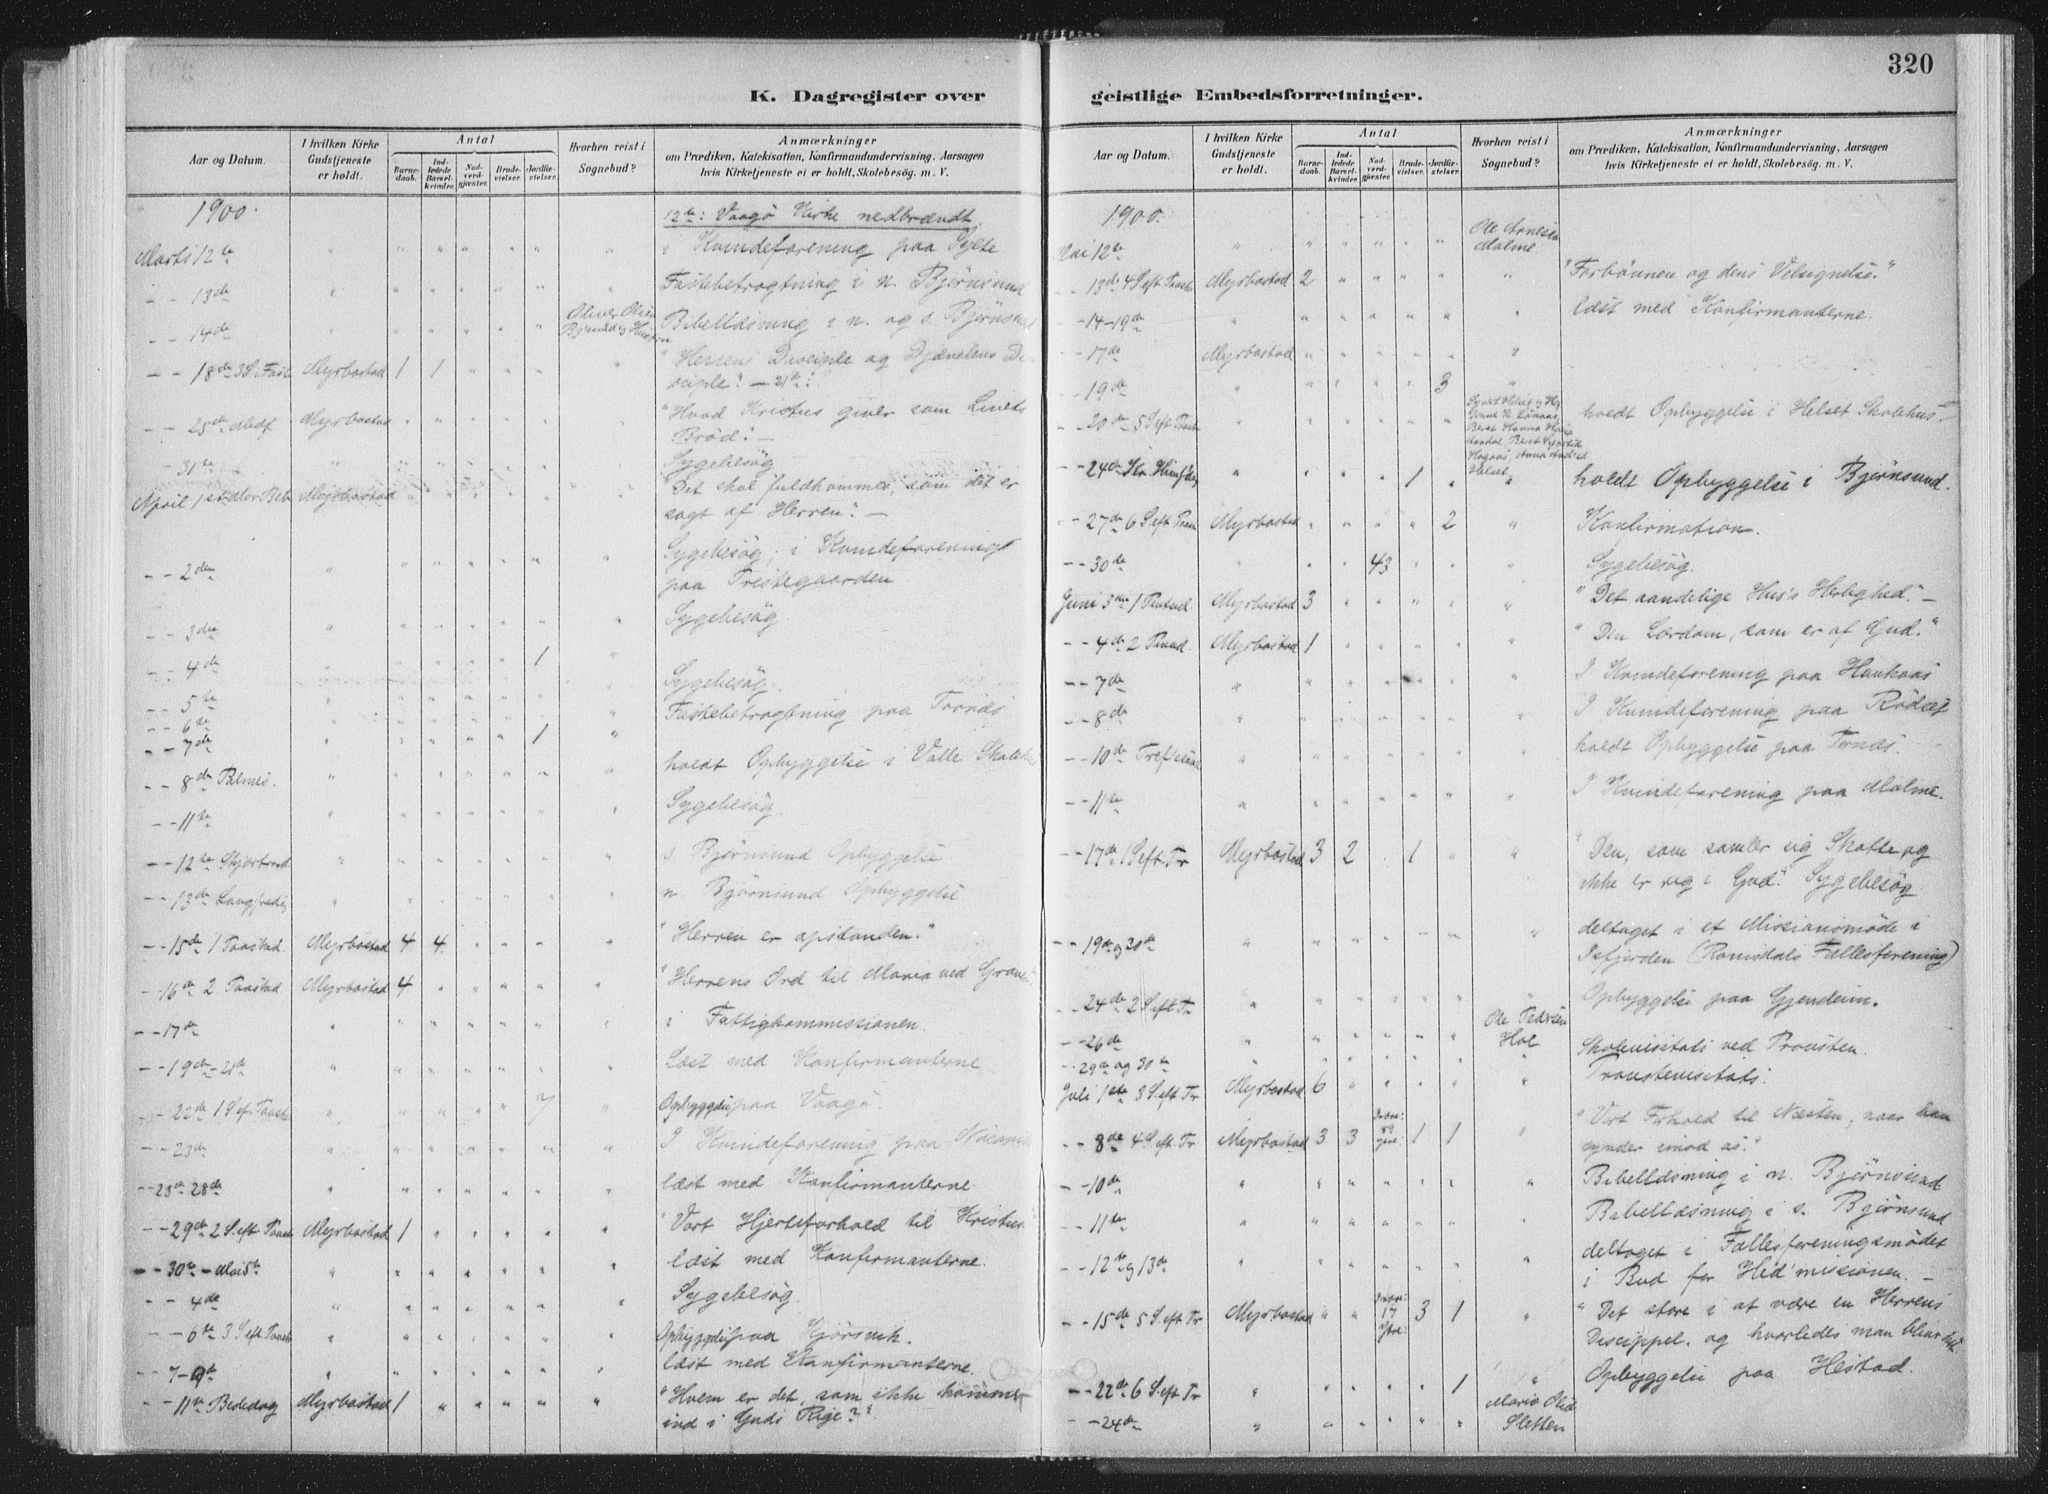 320
K. Dagregister over geistlige Embedsforretninger.
Aar og Datum.
I hvilken Kirke Gudstjeneste er holdt.
Antal
Barnedaab.
Indledede Barselkvinder.
Nadverdgjæster.
Brudevielser.
Jordfæstelser.
Hvorhen reist i Sognebud?
Anmærkninger
om Prædiken, Katekisation, Konfirmandundervisning, Aarsagen
hvis Kirketjeneste ei er holdt, Skolebesög. m. V.
1900.
12te: Vaagö Kirke nedbrændt.
Marts 12te " " " " " " " i Kvindeforening paa Sylte
- - 13de " " " " " " " Fastebetragtning i n. Björnsund
- - 14de " " " " " " Bibellæsning i n. og s. Björnsund
- - 18de 3 S. Fast Myrbostad 1 1 " " " " "Herrens Disciple og Djævelens Di-
sciple." - 21de:
- - 25de Midf Myrbostad " " " " " "Hvad Kristus giver som Livets
Bröd." -
- 31te " " " " " " Sygebesög
April 1ste Mar. Beb. Myrbostad " " " " " "Det skal fuldkommes, som det er
sagt af Herren." -
- - 2den " " " " " " " Sygebesög; i Kvindeforening
paa Prestegaarden
- - 3die " " " " " " " Sygebesög.
- - 4de " " " " 1 "
- - 5te " " " " " " Sygebesög.
- - 6te " " " " " " Fastebetragtning paa Tornæs
- - 7de " " " " " 1 "
- - 8de Palmes. " " " " " " holdt Opbyggelse i Valle Skolehus
- - 11te " " " " " " Sygebesög.
- - 12te Skjærtorsd " " " " " " s. Björnsund Opbyggelse
- - 13de Langfredag " " " " " " n. Björnsund Opbyggelse
- - 15de 1 Paasked. Myrbostad 4 4 " " " " "Herren er opstanden."
- - 16de 2 Paasked Myrbostad 4 " " " " " "Herrens Ord til Maria ved Graven."
- - 17de " " " " " " i Fattigkommissionen.
- - 19de-21de " " " " " " Læst med Konfirmanterne
- - 22de 1 S. ef. Paaske " " " " " 7 " Opbyggelse paa Vaagö.
- - 23de " " " " " " I Kvindeforening paa
- - 23de 28de " " " " " " læst med Konfirmanterne
- - 29de 2 S. eft Paaske Myrbostad 1 " " " " " "Vort Hjerteforhold til Kristus."
- - 30te - Mai 5te " " " " " " læst med Konfirmanterne.
- - 4de " " " " " " Sygebesög.
- - 6te 3 S. eft Paaske " " " " " " Opbyggelse paa Kjörsvik.
- - 7-9de " " " " " " læst med Konfirmanterne.
- - 11te Bededag Myrbostad 1 " " " " " "Hvem er det, som ikke kommer
ind i Guds Rige?"
Aar og Datum.
I hvilken Kirke Gudstjeneste er holdt.
Antal
Barnedaab.
Indledede Barselkvinder.
Nadverdgjæster.
Brudevielser.
Jordfæstelser.
Hvorhen reist i Sognebud?
Anmærkninger
om Prædiken, Katekisation, Konfirmandundervisning, Aarsagen
hvis Kirketjeneste ei er holdt, Skolebesög. m. V.
1900.
Mai 12te " " " " " " Ole Arnesen Malme
- - 13de 4 S. eft Paaske Myrbostad 2 " " " " " "Forbönnen og dens Velsignelse."
- - 14-19de " " " " " " læst med Konfirmanterne.
- - 17de Myrbostad " " " " " "
- - 19de " " " " " 3 "
- - 20de 5 S. eft Paaske " " " " " holdt Opbyggelse i Helset Skolehus. -
- - 24de Kr. Himf.dag " " " " 1 " " holdt Opbyggelse i Björnsund.
- - 27de 6 S. eft Paaske Myrbostad " " " " 2 " Konfirmation.
- - 30te " " " 43 " " " Sygebesög.
Juni 3die 1 Pintsed. Myrbostad 3 " " " " " "Det aandelige Hus's Herlighed." -
- - 4de 2 Pintsed. Myrbostad 1 " " " " " "Den Lærdom, som er af Gud."
- - 7de " " " " " " I Kvindeforening paa Haukaas
- - 8de " " " " " " I Kvindeforening paa Rödset
- - 10de Tref.söndag " " " " " " holdt Opbyggelse paa Tornæs.
- - 11te " " " " " " I Kvindeforening paa Malme.
- - 17de 1 S. eft Tr Myrbostad 3 2 " 1 " " "Den, som samler sig Skatte og
ikke er rig i Gud." Sygebesög.
- - 19de og 20de " " " " " " deltaget i et Missionsmöde i
Isfjorden (Romsdals Fællesforening)
- - 24de 2 S. eft Tr " " " " " " Opbyggelse paa Gjendem.
- - 26de " " " " " " Ole Pedersen Hol
- - 29de og 30te " " " " " " Skolevisitats ved Provsten.
Juli 1ste 3 S. eft Tr Myrbostad 6 " " " " " Provstevisitats.
- - 8de 4 S. eft Tr Myrbostad 3 3 89 1 1 " "Vort Forhold til Næsten, naar han
synder imod os."
- - 10de " " " " " " Bibellæsning i n. Björnsund
- - 11te " " " " " " Bibellæsning i s. Björnsund
- - 12te og 13de " " " " " " deltaget i Fællesforeningsmödet
i Bud for Hed'missionen. -
- - 15de 5 S. eft Tr Myrbostad " " 17 3 1 " "Det store i at være en Herrens
Discippel, og hvorledes man bliver det."
- - 22de 6 S. eft Tr " " " " " 1 " Opbyggelse paa Hestad.
- - 24de " " " " " " Maria Sletten